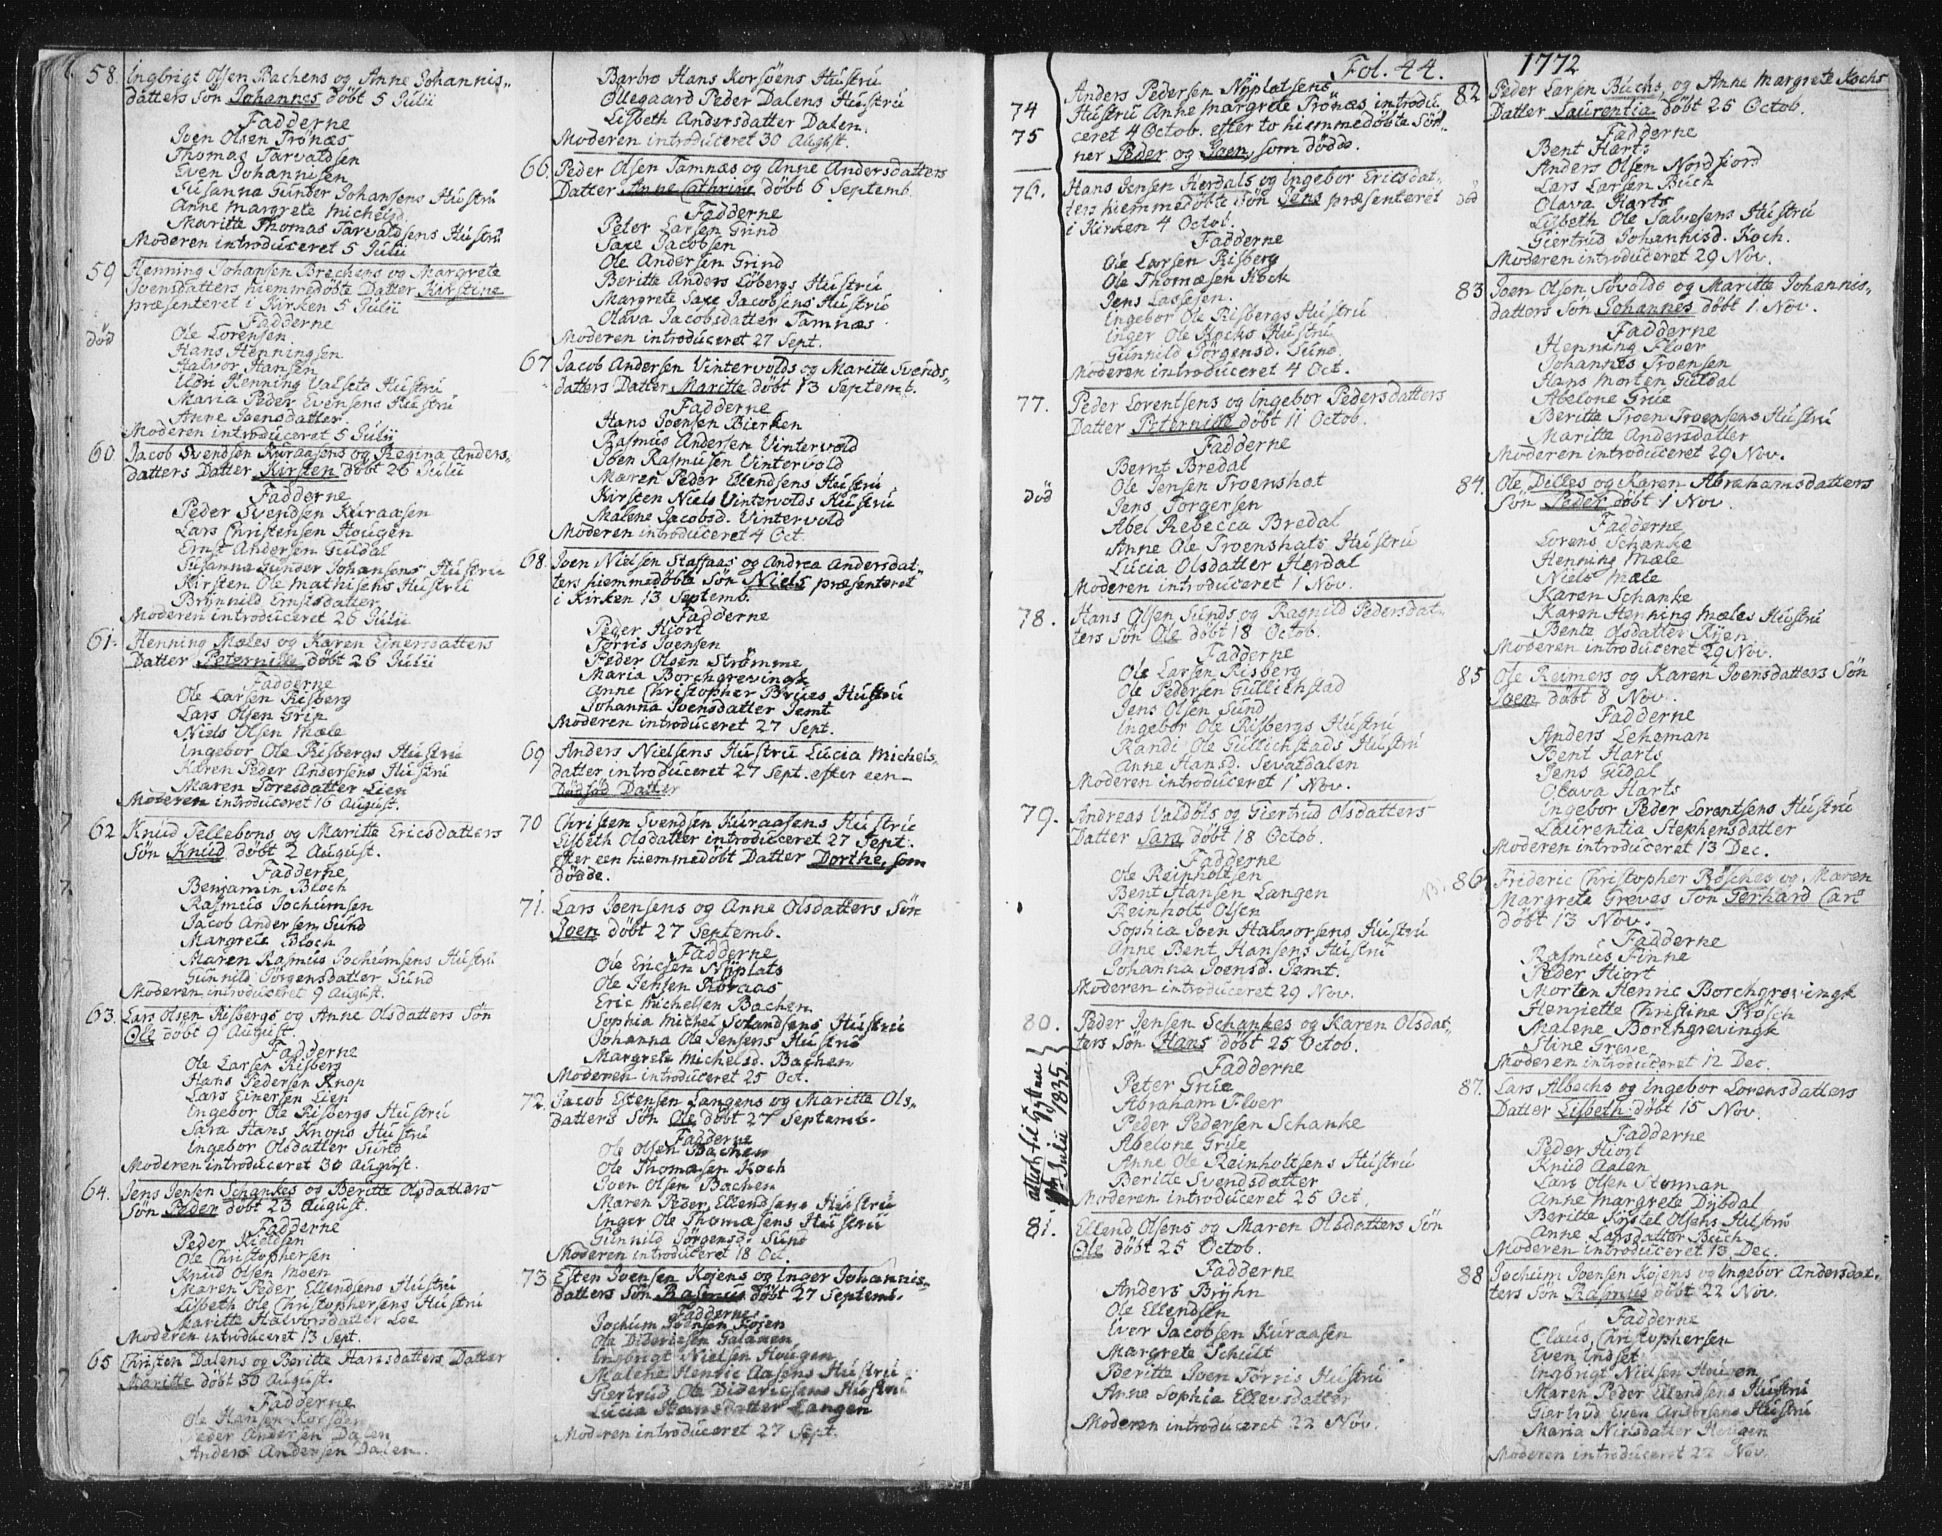 58. Ingbrigt Olsen Bachens og Anne Johannis„
datters Søn Johannes døbt 5 Julii
Fadderne
Joen Olsen Trönæs
Thomas Tarvaldsen
Even Johannisen
Susanna Gunder Johansens Hustru
Anne Margrete Michelsd.
Maritte Thomas Tarvaldsens Hustru
Moderen introduceret 5 Julii
59 Henning Johansen Brechens og Margrete
Joensdatters hiemmedøbte Datter Kirstine
præsenteret i Kirken 5 Julii
Fadderne
død
Ole Lorensen
Hans Henningsen
Halvor Hansen
Uldri Henning Valsets Hustru
Maria Peder Evensens Hustru
Anne Joensdatter
Moderen introduceret 5 Julii
60 Jacob Svendsen Kuraasens og Regina Anders„
datters Datter Kirsten døbt 26 Julii
Fadderne
Peder Svendsen Kuraasen
Lars Christensen Hougen
Ernst Andersen Guldal
Susanna Gunder Johansens Hustru
Kirsten Ole Mathisens Hustru
Brynnild Ernstsdatter
Moderen introduceret 26 Julii
61. Henning Mæles og Karen Einersdatters
Datter Peternille døbt 26 Julii
Fadderne
Ole Larsen Risberg
Lars Olsen Grip
Niels Olsen Mæle
Ingebor Ole Risbergs Hustru
Karen Peder Andersens Hustru
Maren Toresdatter Lien
Moderen introduceret 16 August.
62 Knud Tellebons og Maritte Ericsdatters
Søn Knud døbt 2 August.
Fadderne
Benjamin Bloch
Rasmus Jochumsen
Jacob Andersen Sund
Margrete Bloch
Maren Rasmus Jochumsens Hustru
Gunnild Jörgensdatter Sund
Moderen introduceret 9 August.
63. Lars Olsen Risbergs og Anne Olsdatters Søn
Ole døbt 9 August.
Fadderne
Ole Larsen Risberg
Hans Pedersen Knop
Lars Einersen Lien
Ingebor Ole Risbergs Hustru
Sara Hans Knops Hustru
Ingebor Olsdatter Sund
Moderen introduceret 30 August.
64. Jens Jensen Schankes og Beritte Olsdatters
Søn Peder døbt 23 August.
Fadderne
Peder Kieldsen
Ole Christophersen
Knud Olsen Moen
Maren Peder Ellendsens Hustru
Lisbeth Ole Christophersens Hustru
Maritte Halvorsdatter Loe
Moderen introduceret 13 Sept.
65 Christen Dalens og Beritte Hansdatters Datter
Maritte døbt 30 August.
Fadderne
Ole Hansen Korsöen
Peder Andersen Dalen
Anders Andersen Dalen.
Barbro Hans Korsöens Hustru
Ollegaard Peder Dalens Hustru
Lisbeth Andersdatter Dalen
Moderen introduceret 30 August.
66. Peder Olsen Tamnæs og Anne Andersdatters
Datter Anne Cathrine døbt 6 Septemb.
Fadderne
Peter Larsen Grind
Saxe Jacobsen
Ole Andersen Grind
Beritte Anders Löbergs Hustru
Margrete Saxe Jacobsens Hustru
Olava Jacobsdatter Tamnæs
Moderen introduceret 27 Sept.
67 Jacob Andersen Vintervolds og Maritte Svends„
datters Datter Maritte døbt 13 Septemb.
Fadderne
Hans Joensen Bierken
Rasmus Andersen Vintervold
Joen Rasmusen Vintervold
Maren Peder Ellendsens Hustru
Kirsten Niels Vintervolds Hustru
Malene Jacobsd. Vintervold
Moderen introduceret 4 Oct.
68. Joen Nielsen Staffaas og Andrea Andersdat„
ters hiemmedøbte Søn Niels præsenteret
i Kirken 13 Septemb.
Fadderne
Peder Hiort
Torris Joensen
Peder Olsen Strömme
Maria Borchgrevingk
Anne Christopher Brües Hustru
Johanna Joensdatter Jemt
Moderen introduceret 27 Sept.
69 Anders Nielsens Hustru Lucia Michels„
datter introduceret 27 Sept. efter een
Dødfød Datter
70 Christen Svendsen Kuraasens Hustru
Lisbeth Olsdatter introduceret 27 Sept.
efter een hiemmedøbt Datter Dorthe, som
døde.
71. Lars Joensens og Anne Olsdatters Søn
Joen døbt 27 Septemb.
Fadderne
Ole Ericsen Nÿplats
Ole Jensen Röraas
Eric Michelsen Bachen
Sophia Michel Johandsens Hustru
Johanna Ole Jensens Hustru
Margrete Michelsd. Bachen
Moderen introduceret 25 Oct.
72. Jacob Estensen Langens og Maritte Ols„
datters Søn Ole døbt 27 Septemb.
Fadderne
Ole Olsen Bachen
Ole Thomæsen Koch
Joen Olsen Bachen
Maren Peder Ellendsens Hustru
Inger Ole Thomæsens Hustru
Gunnild Jörgensd. Sund
Moderen introduceret 18 Oct.
73 Esten Joensen Kojens og Inger Johannis„
datters Søn Rasmus døbt 27 Septemb.
Fadderne
Jochum Joensen Kojen
Ole Didericsen Galaaen
Ingbrigt Nielsen Hougen
Malene Henric Aasens Hustru
Giertrud Ole Didericsens Hustru
Lucia Hansdatter Langen
Moderen introduceret 27 Sept.
Fol. 44.
Anders Pedersen Nÿplatsens
74 Hustru Anne Margrete Trönæs introdu„
75 ceret 4 Octob. efter to hiemmedøbte Søn„
ner Peder og Joen, som døde.
76. Hans Jensen Herdals og Ingebor Ericsdat„
ters hiemmedøbte Søn Jens præsenteret
i Kirken 4 Octob.
Fadderne
Ole Larsen Risberg
Ole Thomæsen Kock
Jens Lassesen.
Ingebor Ole Risbergs Hustru
Inger Ole Kocks Hustru
Gunnild Jörgensd. Sund
Moderen introduceret 4 Oct.
77. Peder Lorentsens og Ingebor Pedersdatters
Datter Peternille døbt 11 Octob.
Fadderne
død
Bernt Bredal
Ole Jensen Troenshat
Jens Torgersen
Abel Rebecca Bredal
Anne Ole Troenshats Hustru
Lucia Olsdatter Herdal
Moderen introduceret 1 Nov.
78. Hans Olsen Sunds og Ragnild Pedersdat„
ters Søn Ole døbt 18 Octob.
Fadderne
Ole Larsen Risberg
Ole Pedersen Gullichstad
Jens Olsen Sund
Ingebor Ole Risbergs Hustru
Randi Ole Gullichstads Hustru
Anne Hansd. Sevatdalen
Moderen introduceret 1 Nov.
79. Andreas Valdöls og Giertrud Olsdatters
Datter Sara døbt 18 Octob.
Fadderne
Ole Reinholtsen
Bent Hansen Langen
Reinholt Olsen
Sophia Joen Halvorsens Hustru
Anne Bent Hansens Hustru
Johanna Joensd. Jemt.
Moderen introduceret 29 Nov.
80. Peder Jensen Schankes og Karen Olsdat„
ters Søn Hans døbt 25 Octob.
Fadderne
attest til
Julii 1835
Peter Grue
Abraham Floer
Peder Pedersen Schanke
Abelone Grue
Anne Ole Rainholtsens Hustru
Beritte Svendsdatter
Moderen introduceret 25 Oct.
81. Ellend Olsens og Maren Olsdatters Søn
Ole døbt 25 Octob.
Fadderne
Anders Brÿhn
Ole Ellendsen
Iver Jacobsen Kuraasen
Margrete Schult
Beritte Joen Torris Hustru
Anne Sophia Ellevsdatter
Moderen introduceret 22 Nov.
1772
82 Peder Larsen Buchs, og Anne Margrete Kochs
Datter Laurentia døbt 25 Octob.
Fadderne
død
Bent Harts
Anders Olsen Nordfiord
Lars Larsen Buch
Olava Harts
Lisbeth Ole Salvesens Hustru
Giertrud Johannisd. Koch.
Moderen introduceret 29 Nov.
83 Joen Olsen Sövolds og Maritte Johannis„
datters Søn Johannes døbt 1 Nov.
Fadderne
Henning Floer
Johannes Troensen
Hans Morten Guldal
Abelone Grue
Beritte Troen Troensens Hustru
Maritte Andersdatter
Moderen introduceret 29 Nov.
84. Ole Dilles og Karen Abrahamsdatters
Søn Peder døbt 1 Nov.
Fadderne
Lorens Schanke
Henning Mæle
Niels Mæle
Karen Schanke
Karen Henning Mæles Hustru
Bente Olsdatter Rÿen
Moderen introduceret 29 Nov.
85 Ole Reimers og Karen Joensdatters Søn
Joen døbt 8 Nov.
Fadderne
Anders Leheman
Bent Harts
Jens Guldal
Olava Harts
Ingebor Peder Lorentsens Hustru
Laurentia Stephensdatter
Moderen introduceret 13 Dec.
86. Frideric Christopher Rösches og Maren
Margrete Greves Søn Gerhard Carl
døbt 13 Nov.
Fadderne
Rasmus Finne
Peder Hiort
Morten Henric Borchgrevingk
Henriette Christine Rösch
Malene Borthgrevingk
Stine Greve
Moderen introduceret 12 Dec.
87. Lars Albechs og Ingebor Lorensdatters
Datter Lisbeth døbt 15 Nov.
Fadderne
Peder Hiort
Knud Aalen
Lars Olsen Storman
Anne Margrete Dÿbdal
BeritteKöstel Olsens Hustru
Anne Larsdatter Buch
Moderen introduceret 13 Dec.
88 Jochum Joensen Kojens og Ingebor Andersdat„
ters Søn Rasmus døbt 22 Nov.
Fadderne
Claus Christophersen
Even Endset
Ingbrigt Nielsen Hougen
Maren Peder Ellendsens Hustru
Giertrud Even Andersens Hustru
Maria Nirisdatter Hougen
Moderen introduceret 22 Nov.